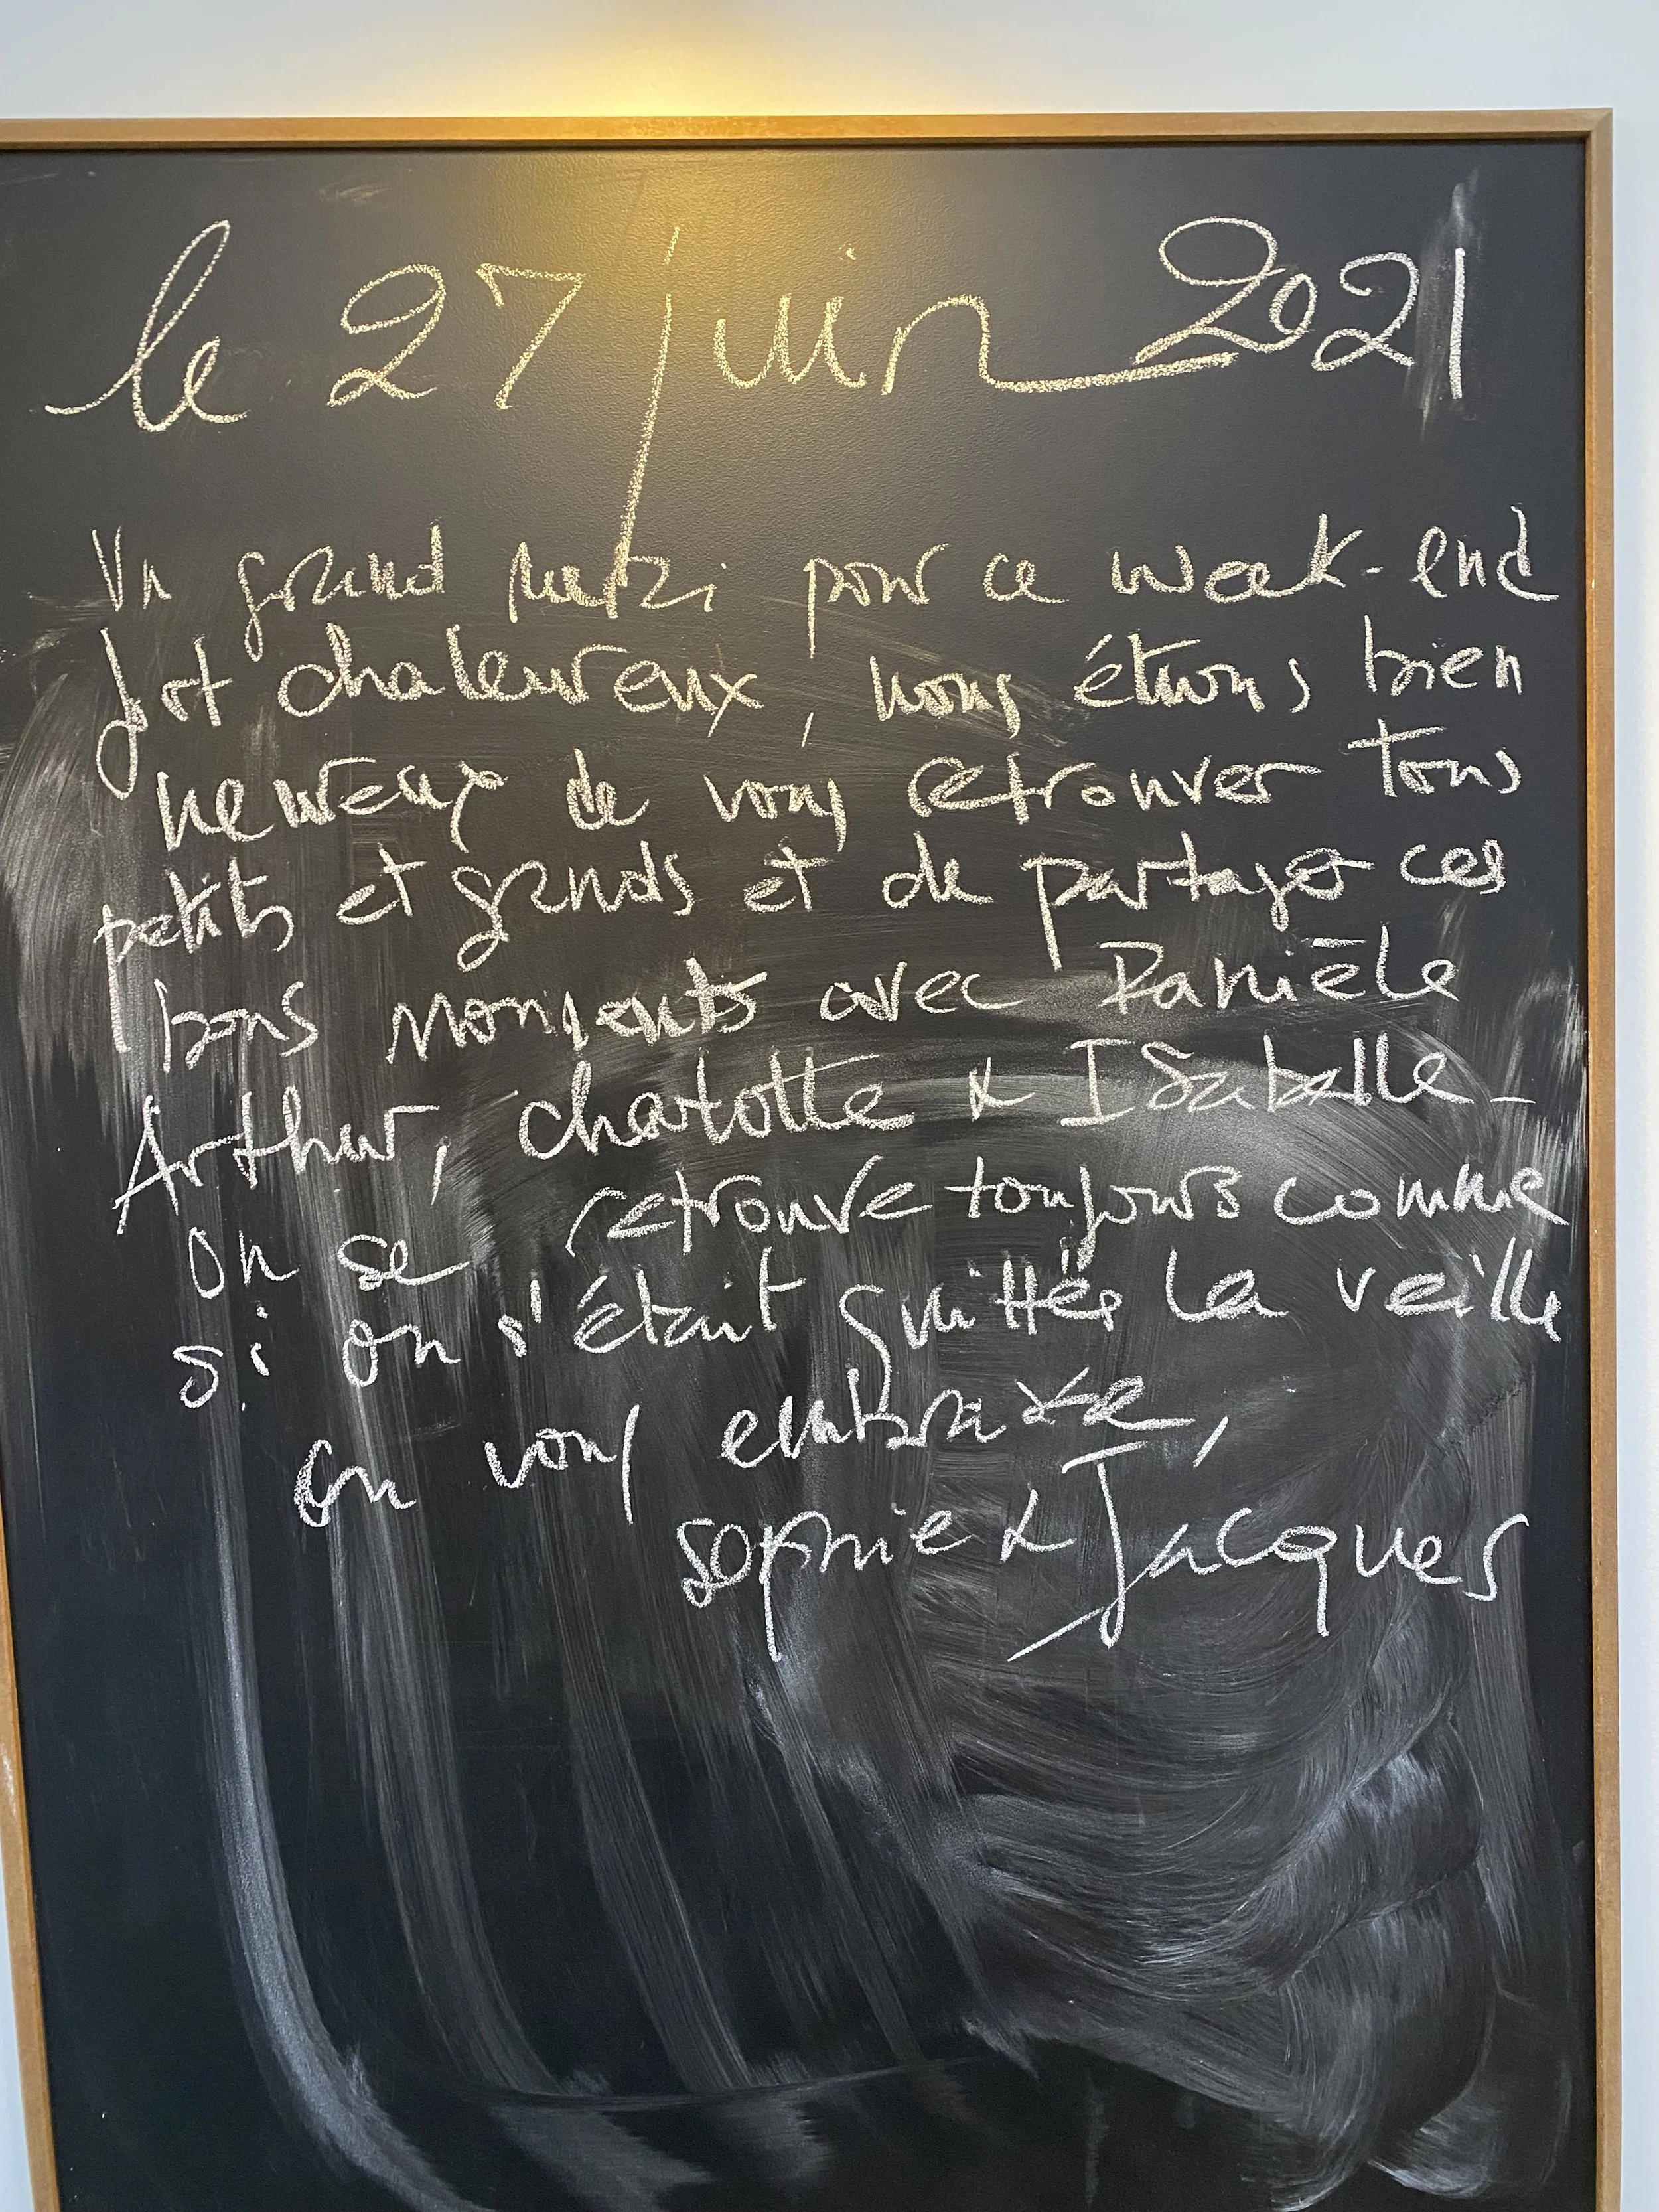 le 27 juin 2021
Un grand merci pour ce week-end
fort chaleureux, nous étions bien
heureux de vous retrouver tous
petits et grands et de partager ces
bons moments avec Danièle
Arthur, charlotte & ISabelle_
on se retrouve toujours comme
si on s'était quittés la veille
on vous embrasse,
sophie & Jacques